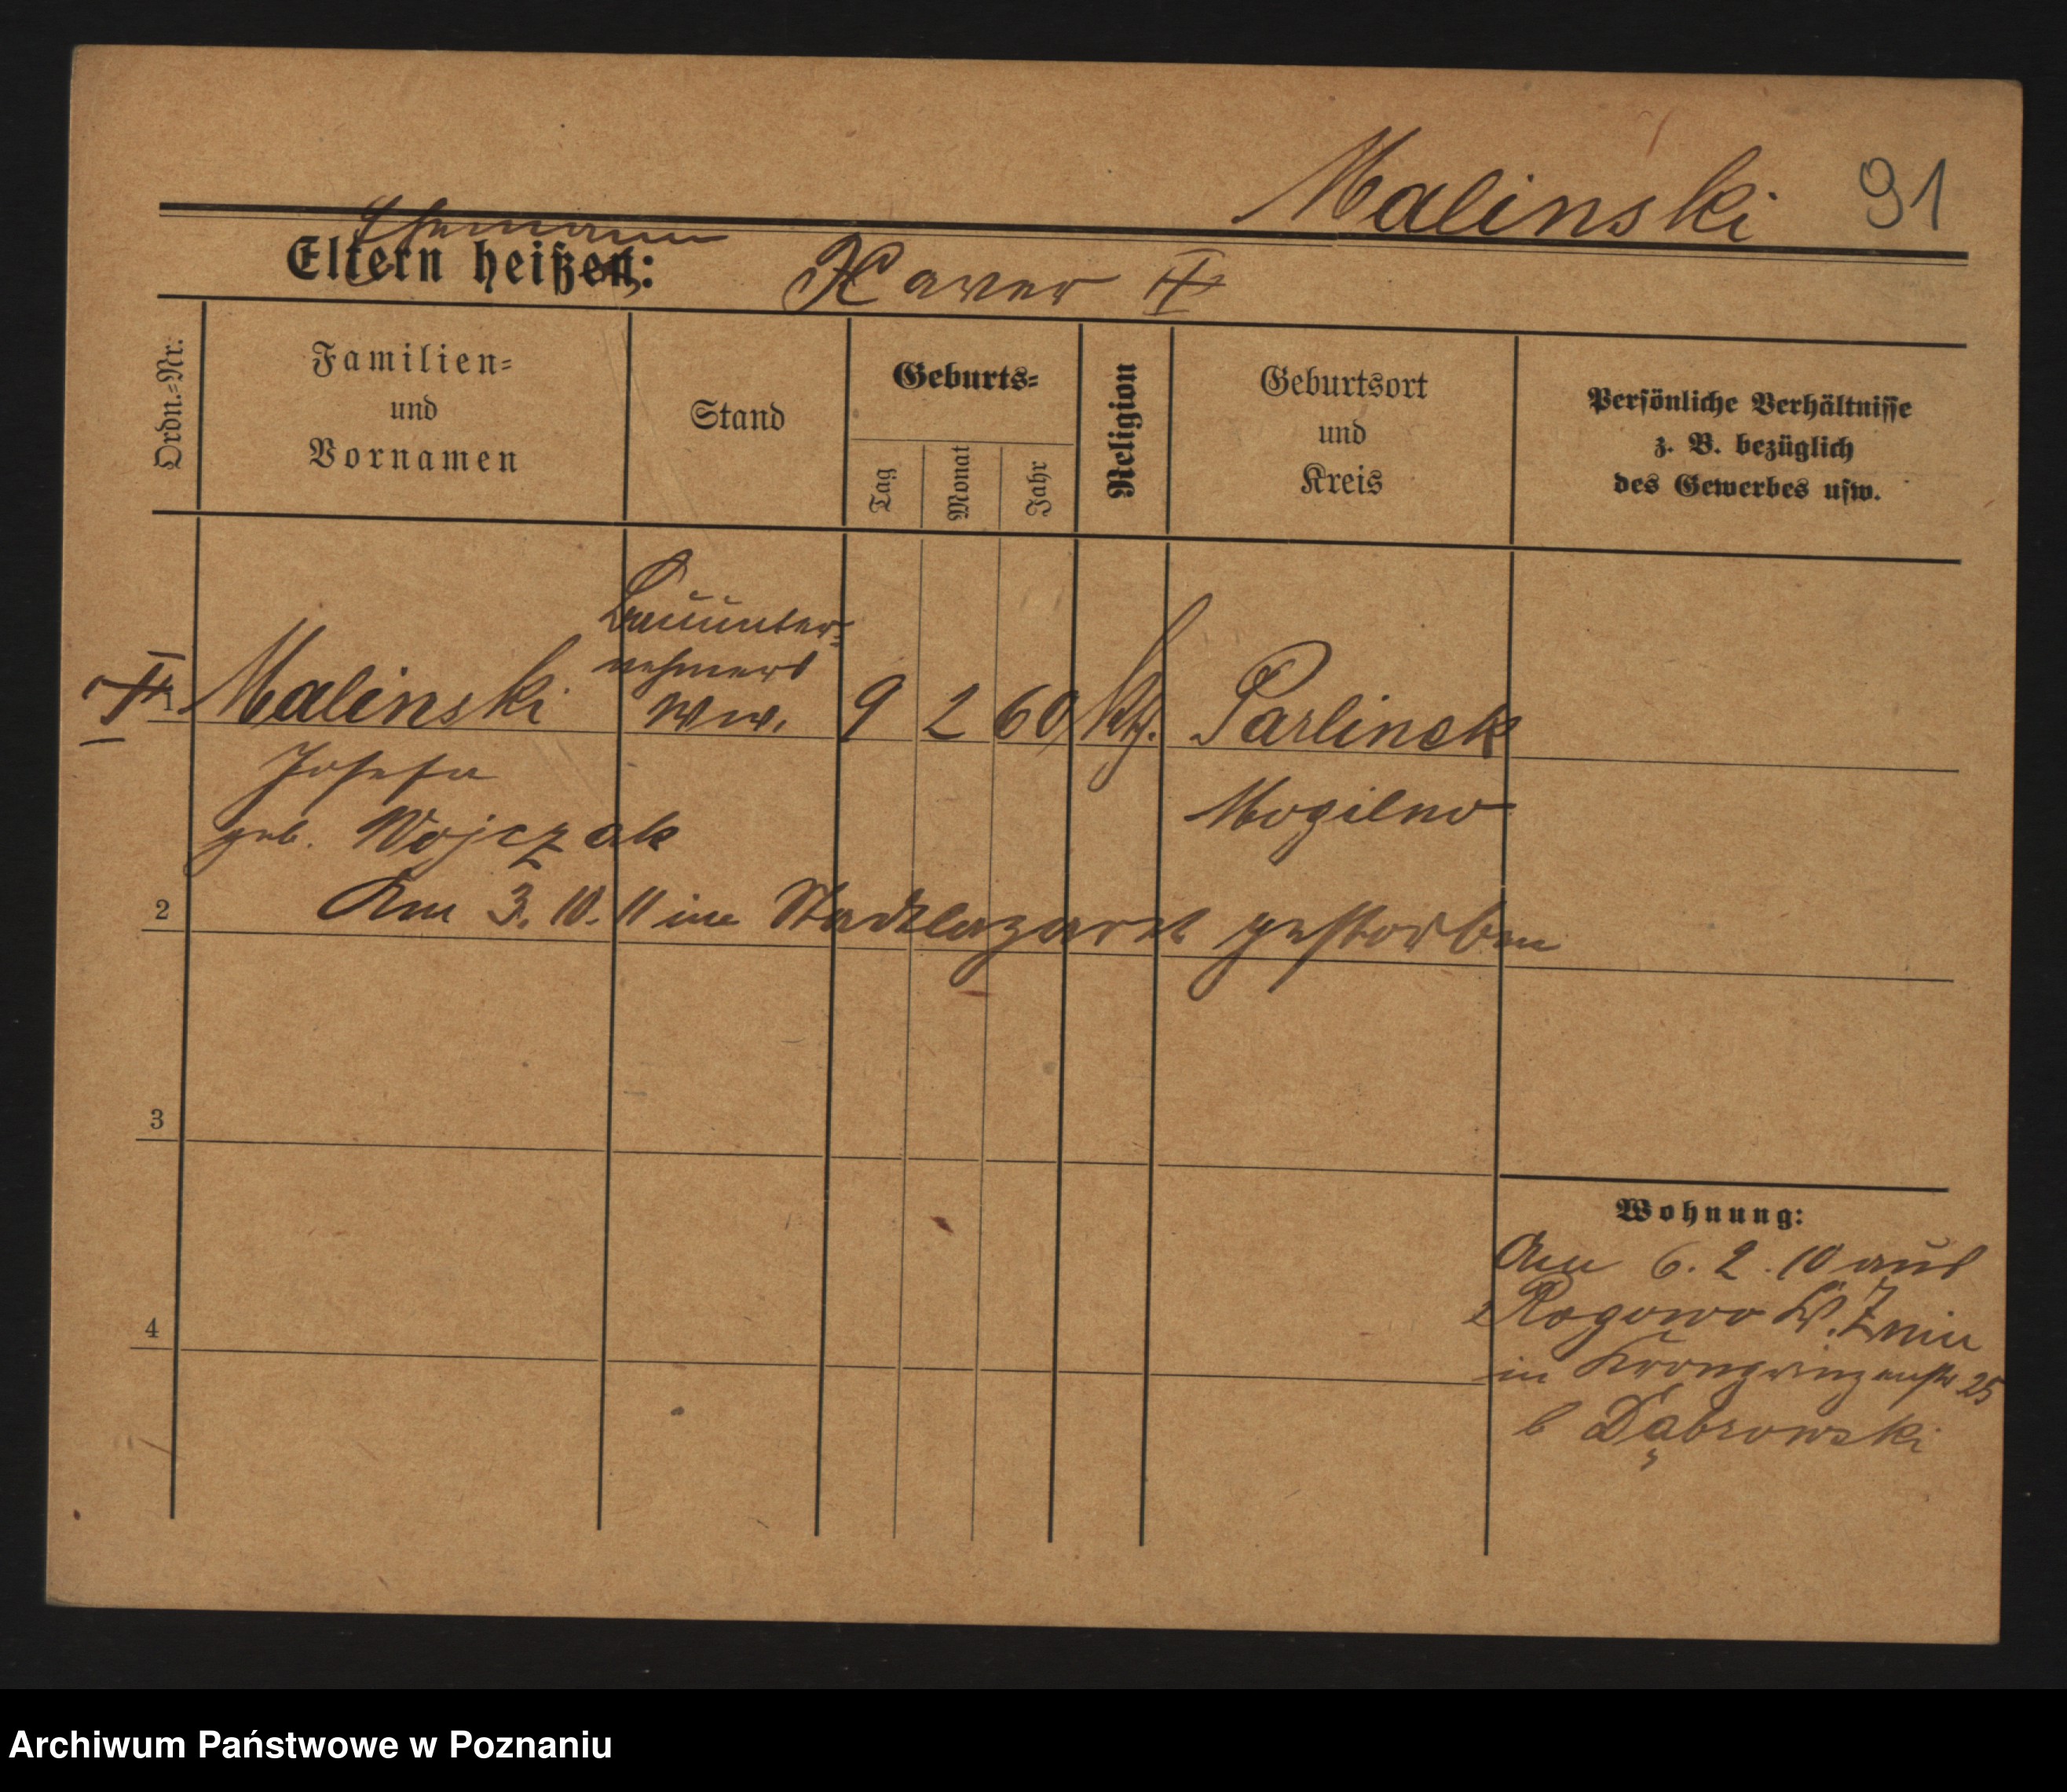 Malinski 91
Ehemann
Eltern heißen: Xaver †
Ordn.-Nr.
Familien-
und
Vornamen
Stand
Geburts-
Tag
Monat
Jahr
Religion
Geburtsort
und
Kreis
Persönliche Verhältnisse
z. B. bezüglich
des Gewerbes usw.
Bauunter-
nehmers
† 1 Malinski Ww. 9 2 60 kth. Parlinek
Josefa Mogilno
geb. Wojczak
2 Am 3. 10. 11 im Stadtlazaret gestorben
3
4
Wohnung:
Am 6. 2. 10 aus
Rogowo Kr. Znin
in Kronprinzenstr 25
b Dąbrowski
Archiwum Państwowe w Poznaniu